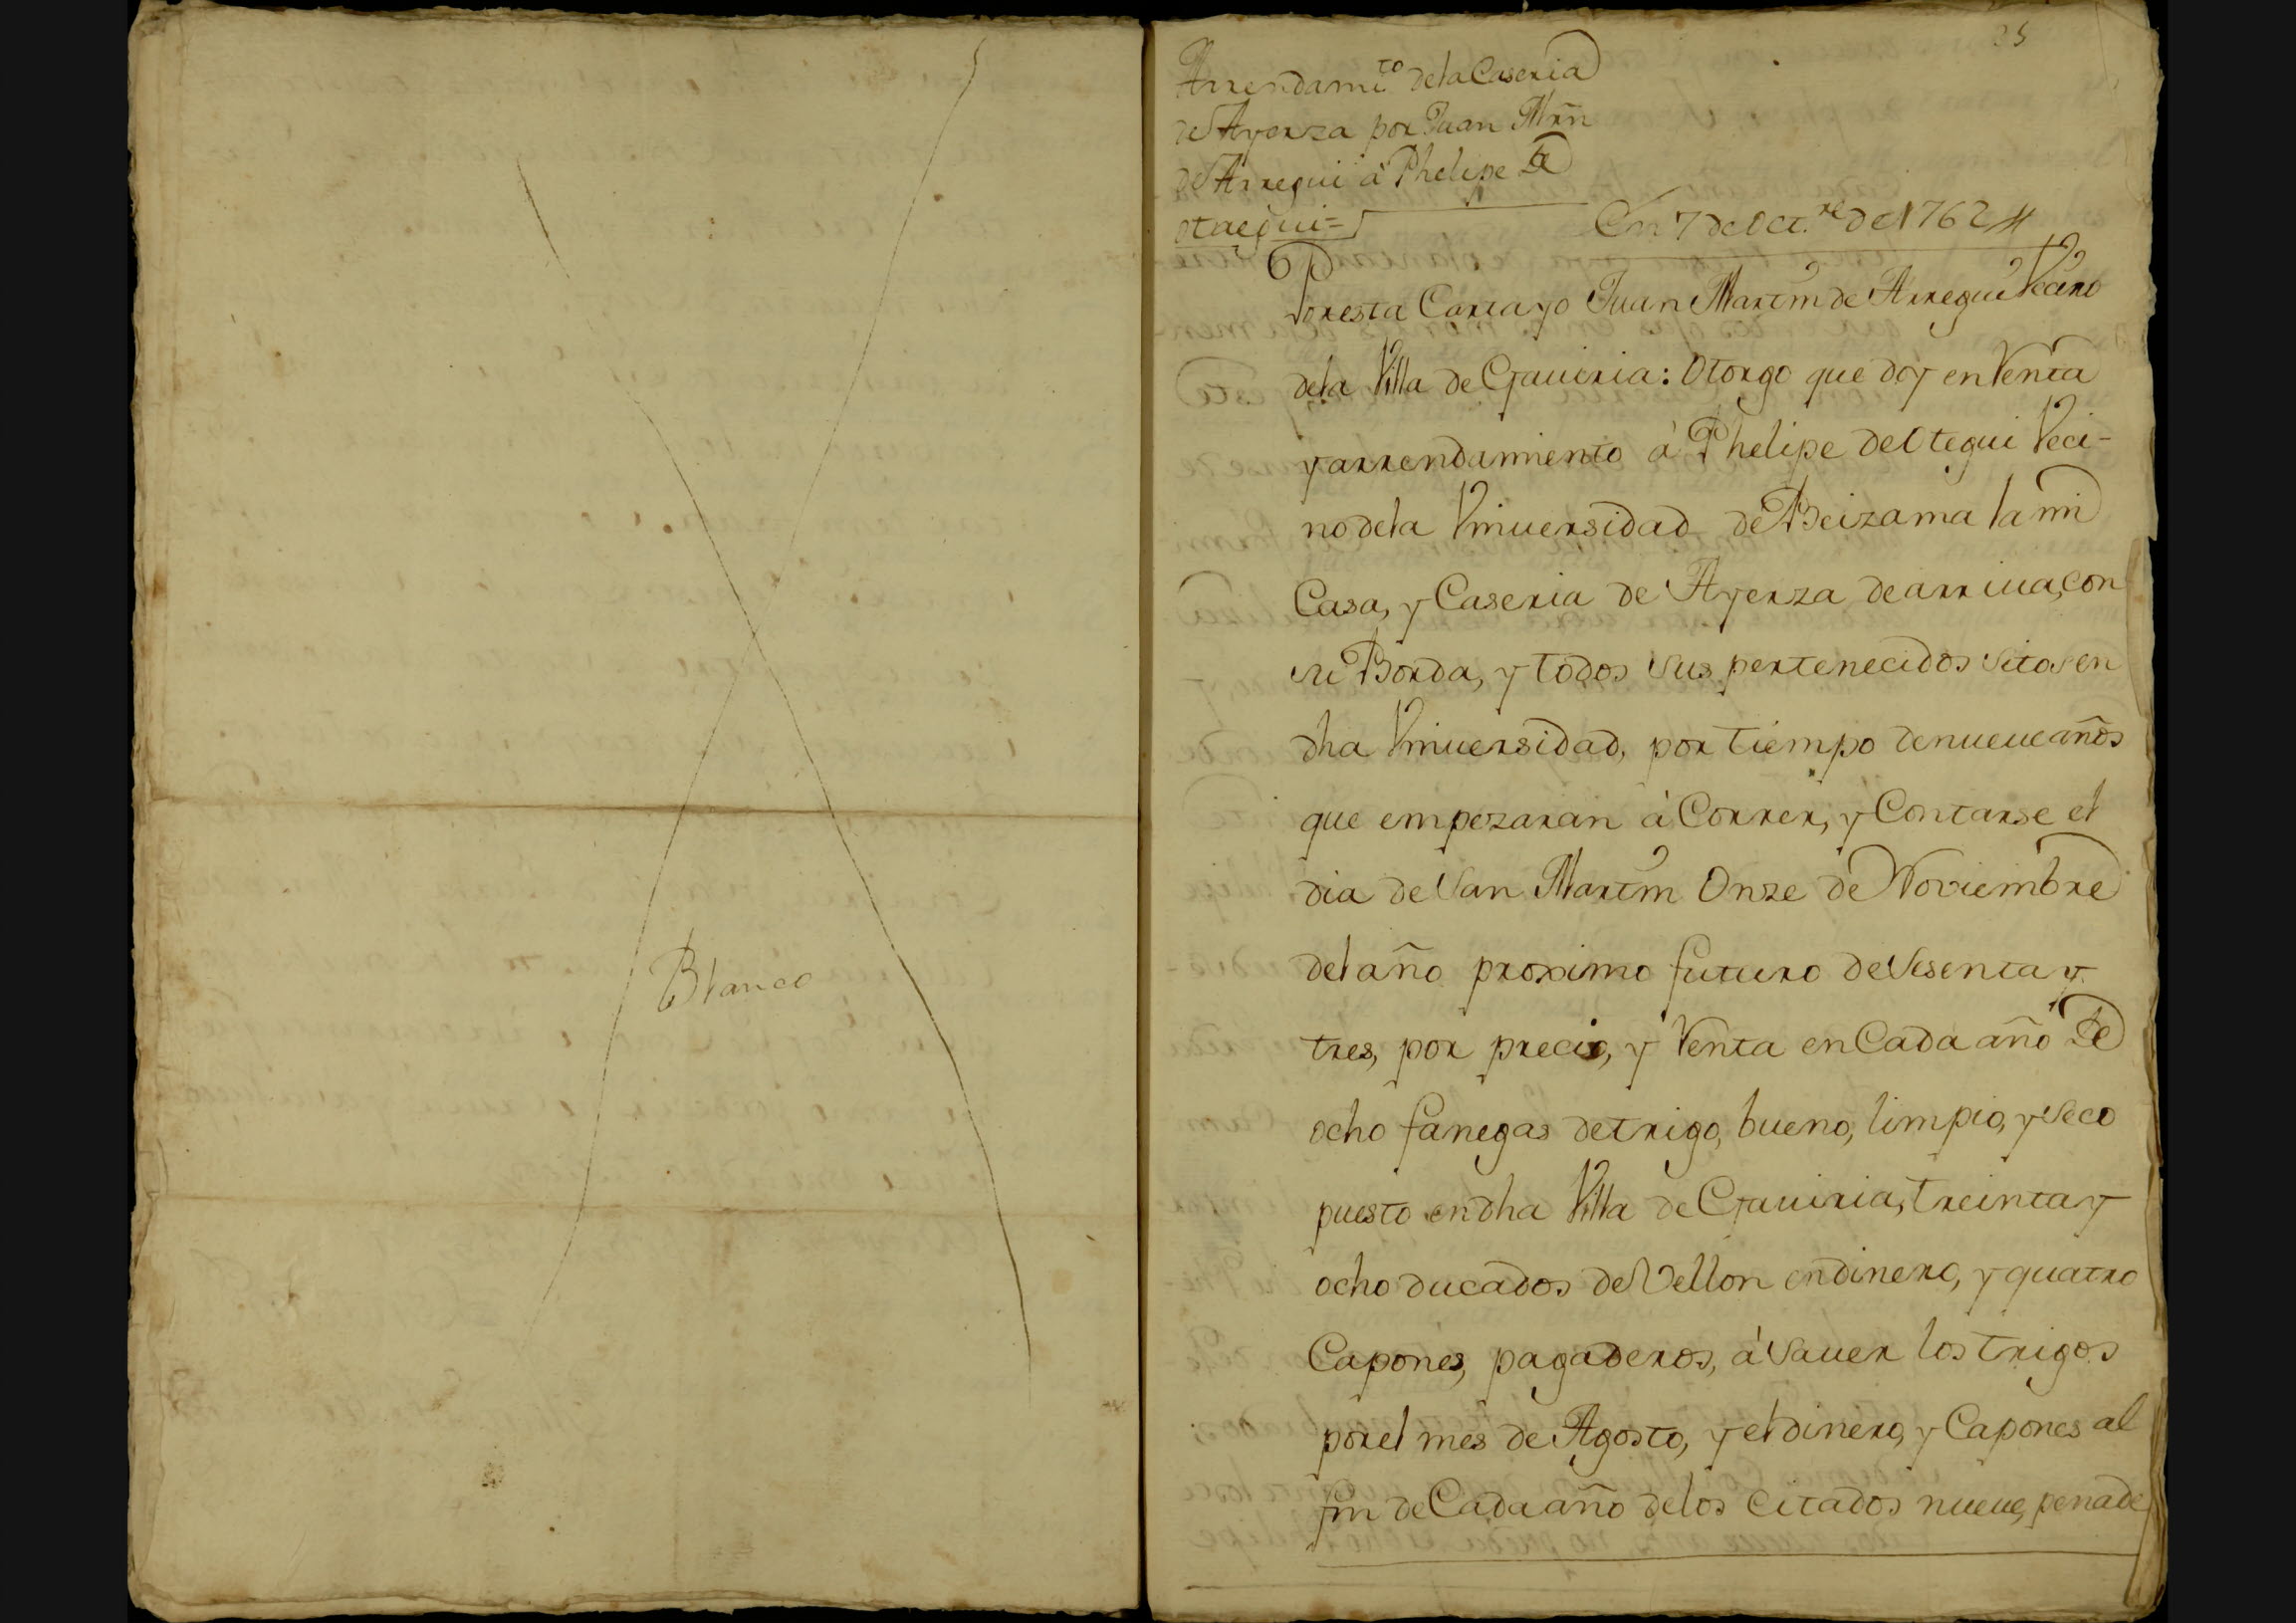 Blanco
25
Arrendami.to dela Caseria
de Ayerza por Juan Mrñ
de Arregui à Phelipe de
otaegui=
En 7 de Oct.re de 1762 //
Poresta Carta yo Juan Martin de Arregui Vecino
dela Villa de Gauiria: Otorgo que doy en Renta
y arrendamiento à Phelipe de Otegui Veci-
no dela Vniuersidad de Beizama la mi
Casa, y Caseria de Ayerza de arriua, con
su Borda, y todos sus pertenecidos sitos en
dha Vniuersidad, por tiempo de nueue años
que empezaran à Correr, y Contarse el
dia de San Martin Onze de Noviembre
del año proximo futuro de Sesenta y
tres, por precio, y Renta en Cada año de
ocho fanegas de trigo, bueno, limpio, y seco
puesto en dha Villa de Gauiria, treinta y
ocho ducados de Vellon en dinero, y quatro
Capones, pagaderos, à Sauer los trigos
por el mes de Agosto, y el dinero, y Capones al
fin de Cada año delos Citados nueue, pena de